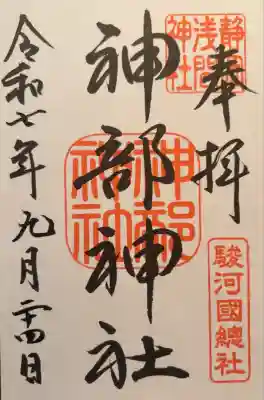 奉拝
静岡
浅間
神社
駿河國總社
神部神社
神部
神社
令和七年九月二十四日